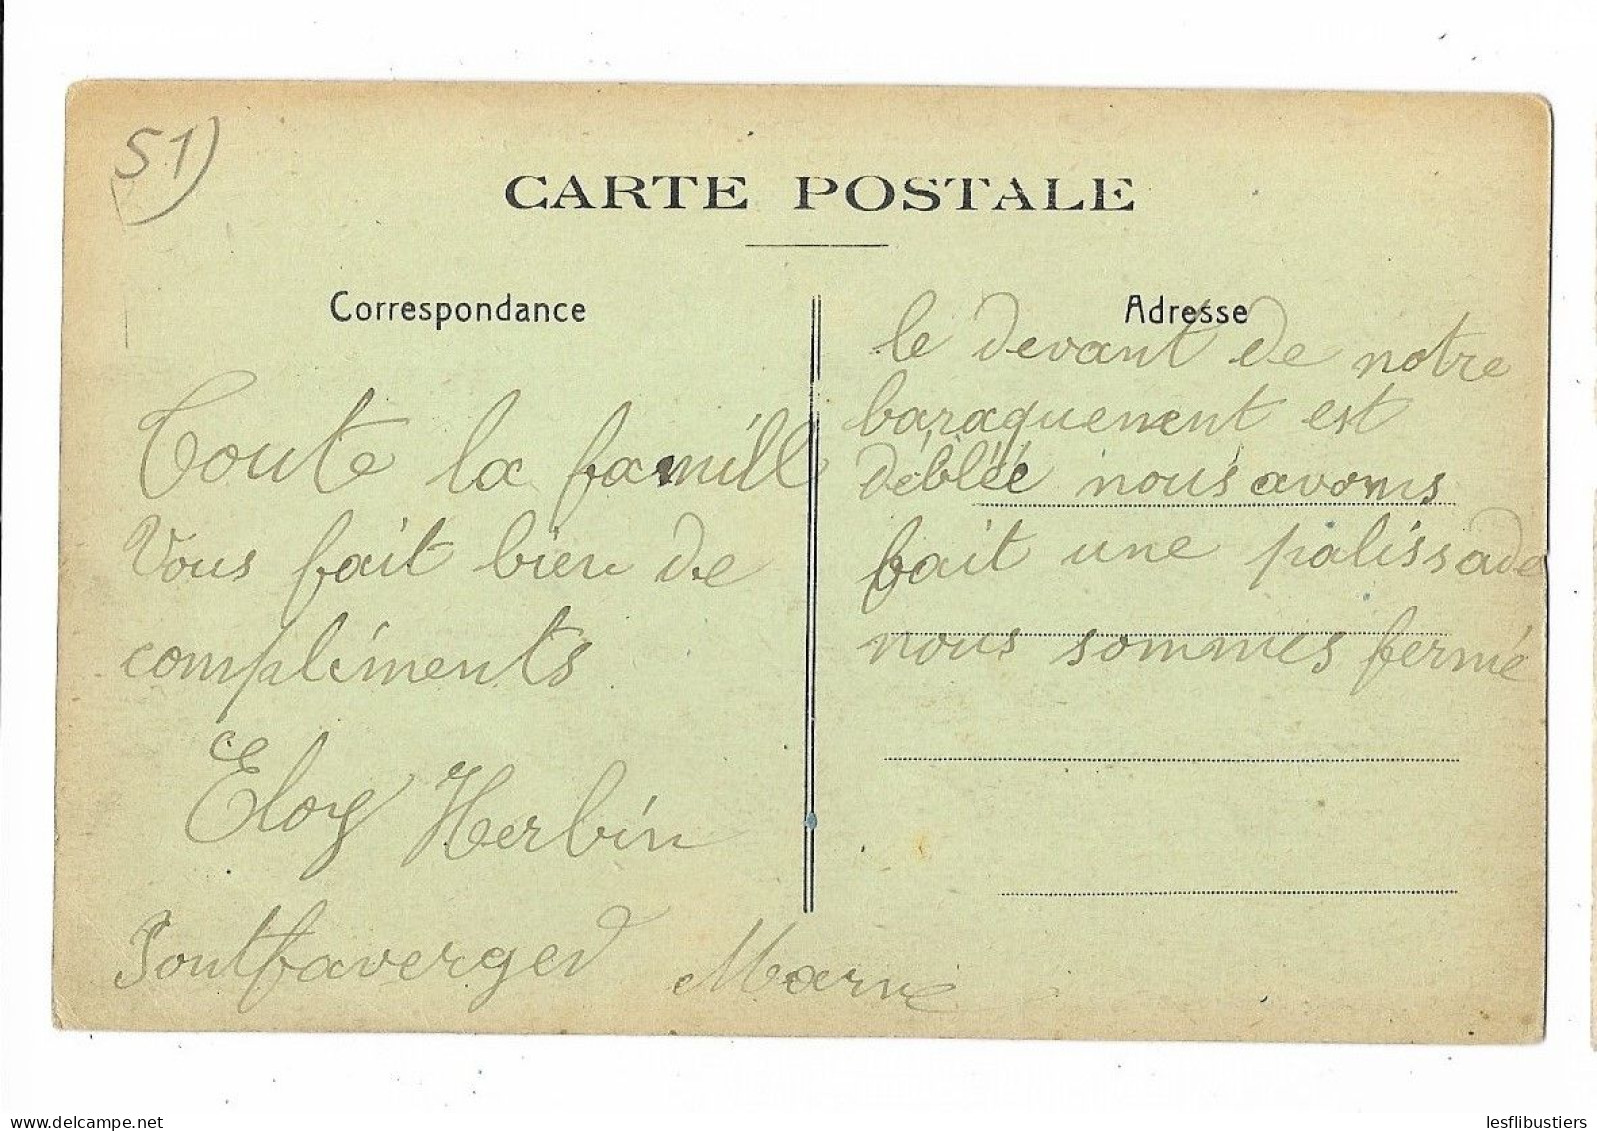 51
CARTE POSTALE
Correspondance
Toute la famill
Vous fait bien de
compliments
Eloy Herbin
Pontfaverger Marne
Adresse
le devant de notre
baraquement est
déblée nous avons
fait une palissade
nous sommes fermé
delcampe.net
lesflibustiers